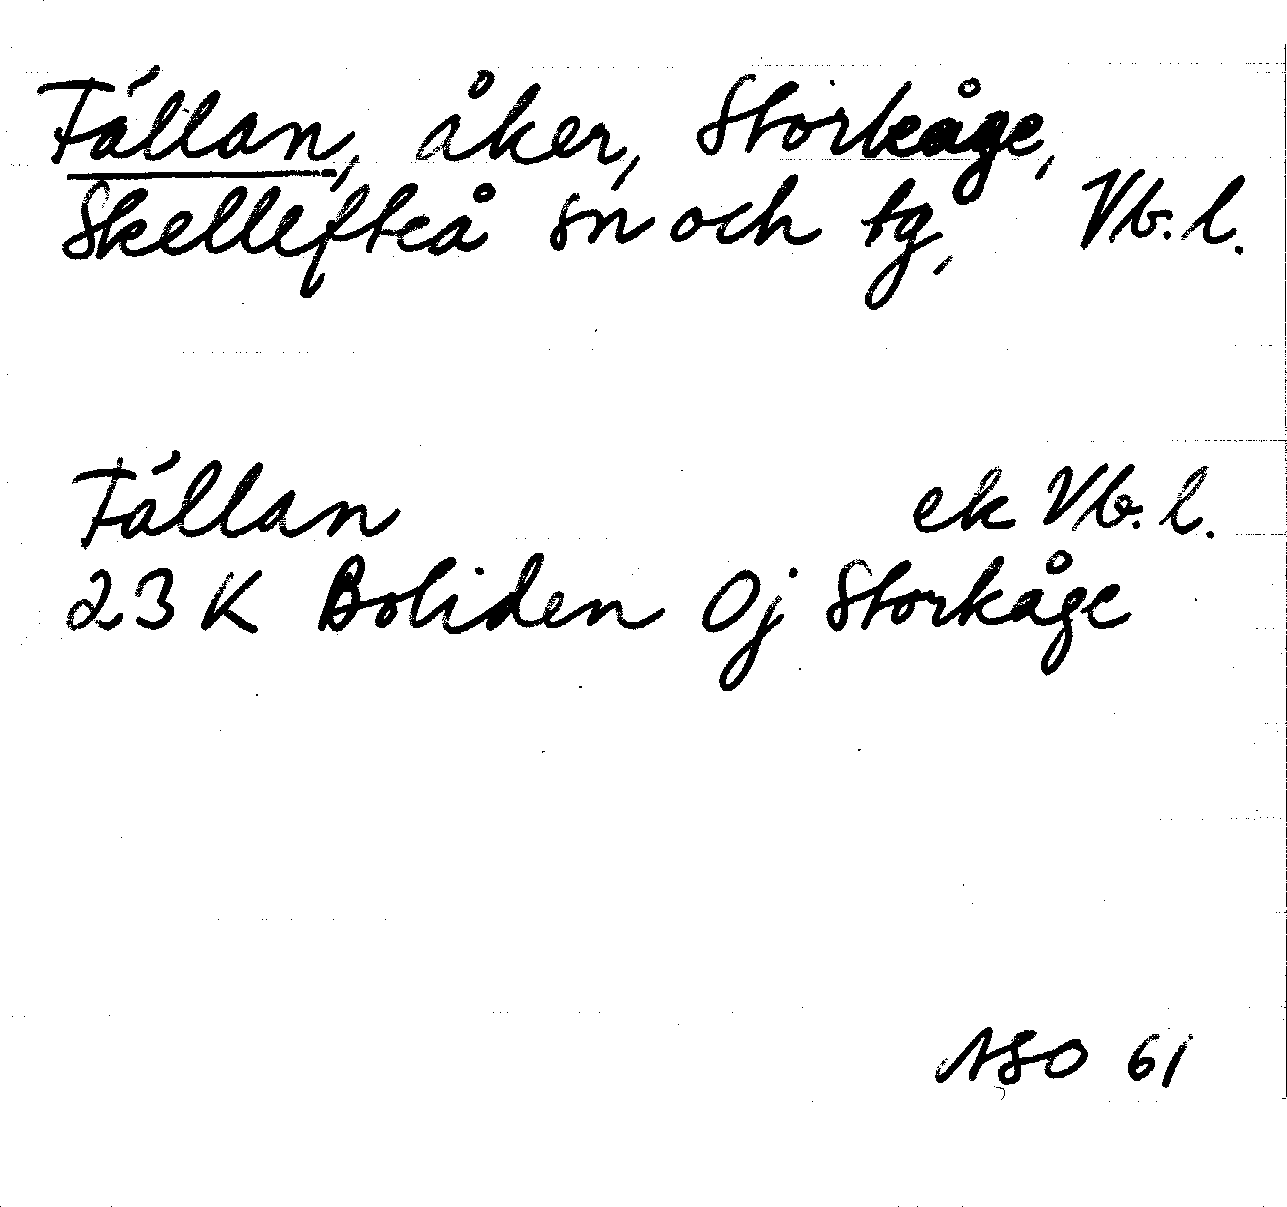 Fällan, åker, Storkåge,
Skellefteå sn och tg, Vb. l.
Fällan ek Vb. l.
23 K Boliden Oj Storkåge
ASO 61